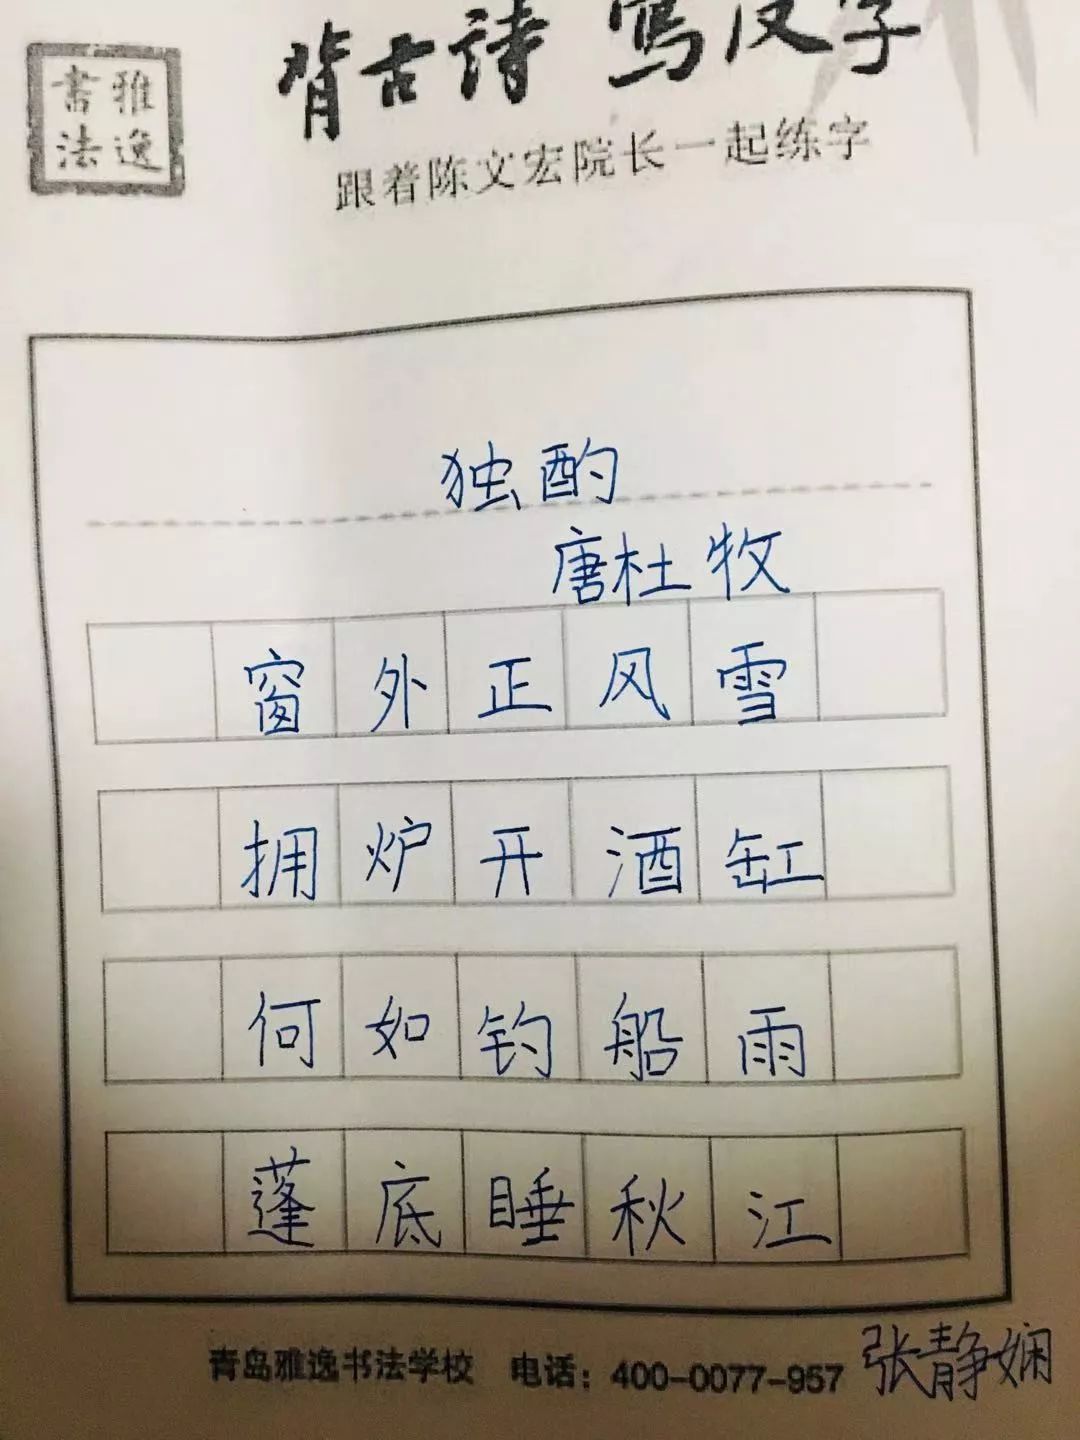 雅逸
書法
背古诗 写汉字
跟着陈文宏院长一起练字
独酌
唐杜牧
窗外正风雪
拥炉开酒缸
何如钓船雨
蓬底睡秋江
青岛雅逸书法学校 电话：400-0077-957
张静娴